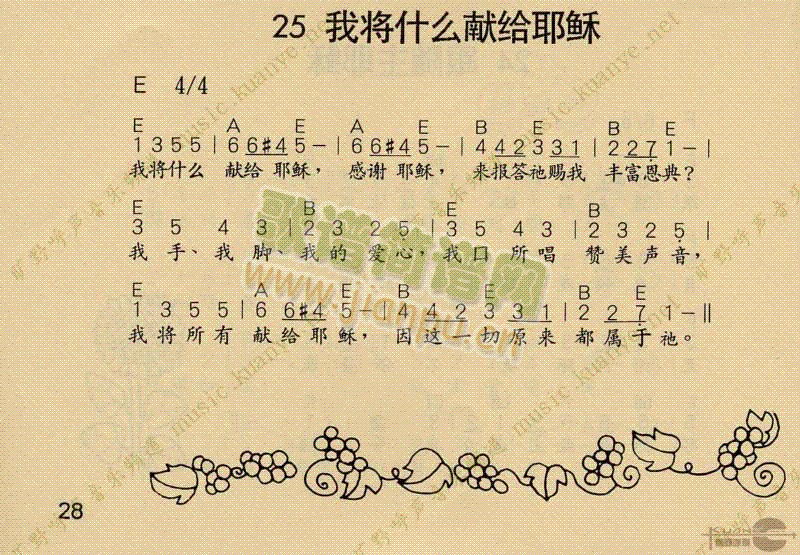 25 我将什么献给耶稣
E 4/4
E A E A E B E B E
1 3 5 5 | 6 6 #4 5 - | 6 6 #4 5 - | 4 4 2 3 3 1 | 2 2 7 1 - |
我将什么 献给 耶稣， 感谢 耶稣， 来报答祂赐我 丰富恩典？
E B E B
3 5 4 3 | 2 3 2 5 | 3 5 4 3 | 2 3 2 5 |
我 手、我 脚、我 的 爱 心，我 口 所 唱 赞 美 声 音，
E A E B E B E
1 3 5 5 | 6 6 #4 5 - | 4 4 2 3 3 1 | 2 2 7 1 - ‖
我 将 所 有 献 给 耶 稣， 因 这 一 切 原 来 都 属 于 祂。
28
歌谱简谱网
www.jianpu.cn
旷野呼声音乐频道 music.kuanye.net